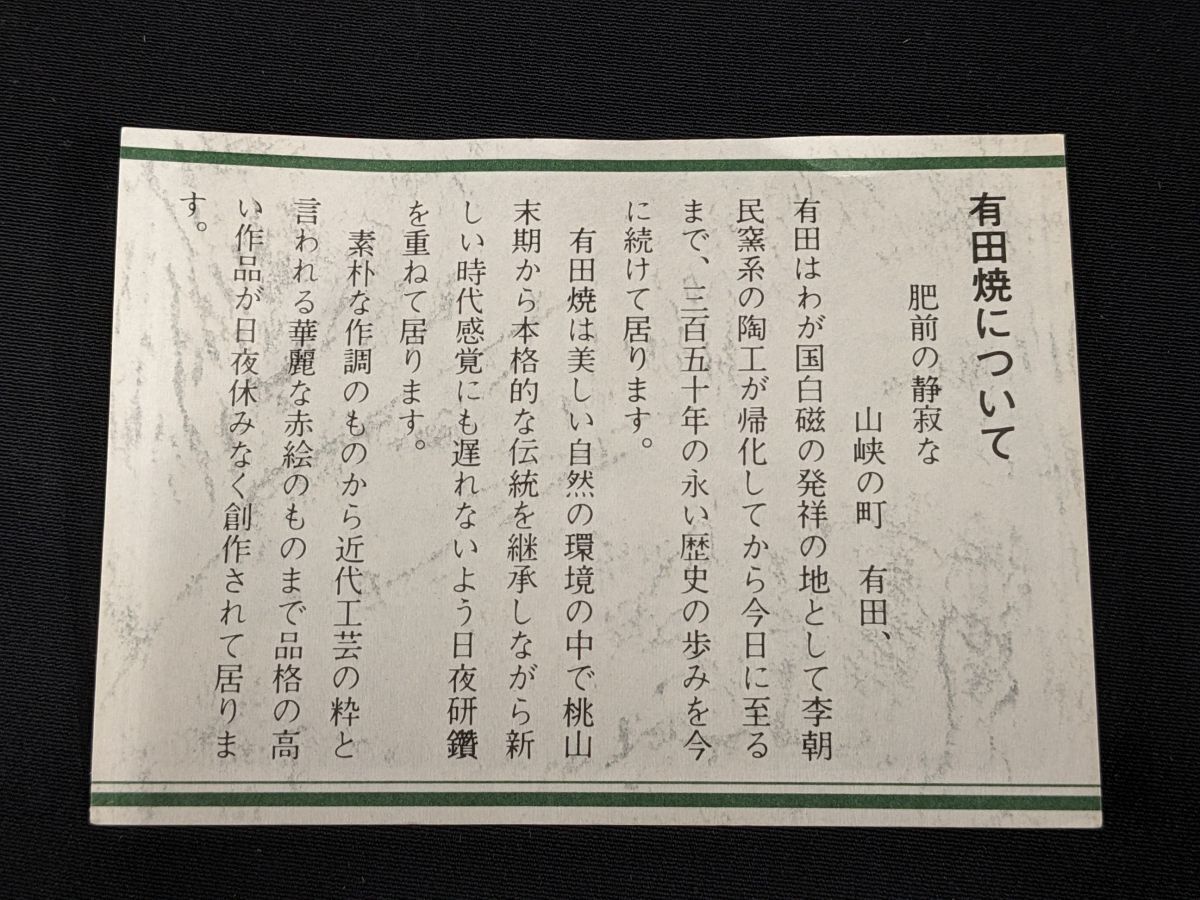 有田焼について
肥前の静寂な
山峡の町　有田、
有田はわが国白磁の発祥の地として李朝
民窯系の陶工が帰化してから今日に至る
まで、三百五十年の永い歴史の歩みを今
に続けて居ります。
有田焼は美しい自然の環境の中で桃山
末期から本格的な伝統を継承しながら新
しい時代感覚にも遅れないよう日夜研鑽
を重ねて居ります。
素朴な作調のものから近代工芸の粋と
言われる華麗な赤絵のものまで品格の高
い作品が日夜休みなく創作されて居りま
す。